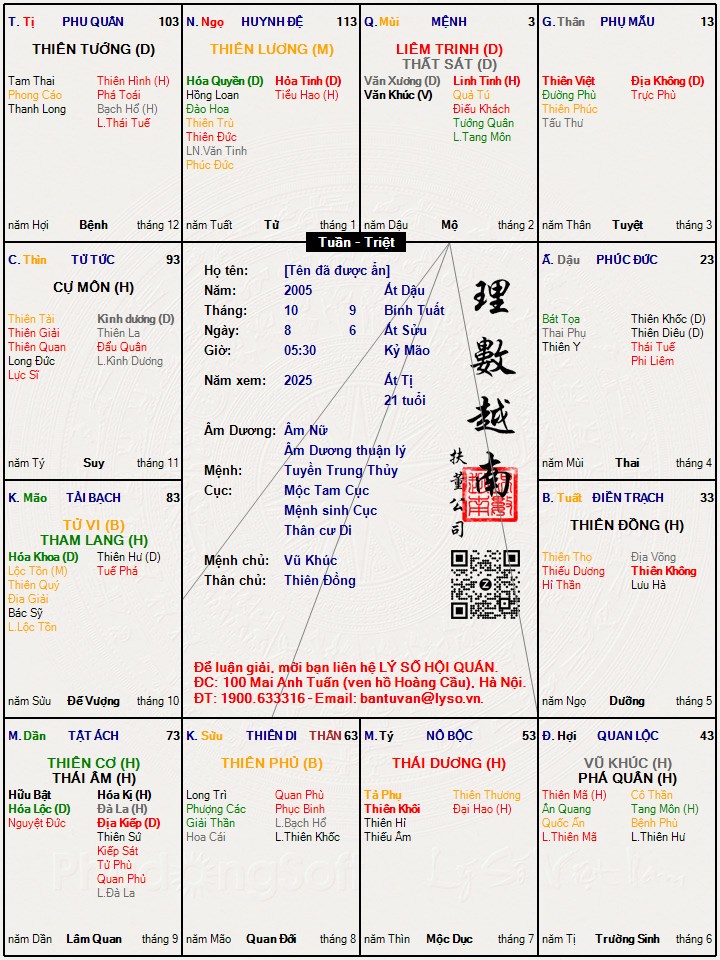 T. Tị PHU QUÂN 103
THIÊN TƯỚNG (D)
Tam Thai Thiên Hình (H)
Phong Cáo Phá Toái
Thanh Long Bạch Hổ (H)
L.Thái Tuế
năm Hợi Bệnh tháng 12
N. Ngọ HUYNH ĐỆ 113
THIÊN LƯƠNG (M)
Hóa Quyền (D) Hỏa Tinh (D)
Hồng Loan Tiểu Hao (H)
Đào Hoa
Thiên Trù
Thiên Đức
LN.Văn Tinh
Phúc Đức
năm Tuất Tử tháng 1
Q. Mùi MỆNH 3
LIÊM TRINH (D)
THẤT SÁT (D)
Văn Xương (D) Linh Tinh (H)
Văn Khúc (V) Quả Tú
Điếu Khách
Tướng Quân
L.Tang Môn
năm Dậu Mộ tháng 2
G. Thân PHỤ MẪU 13
Thiên Việt Địa Không (D)
Đường Phù Trực Phù
Thiên Phúc
Tấu Thư
năm Thân Tuyệt tháng 3
Tuần - Triệt
C. Thìn TỬ TỨC 93
CỰ MÔN (H)
Thiên Tài Kình dương (D)
Thiên Giải Thiên La
Thiên Quan Đẩu Quân
Long Đức L.Kình Dương
Lực Sĩ
năm Tý Suy tháng 11
Họ tên: [Tên đã được ẩn]
Năm: 2005 Ất Dậu
Tháng: 10 9 Bính Tuất
Ngày: 8 6 Ất Sửu
Giờ: 05:30 Kỷ Mão
Năm xem: 2025 Ất Tị
21 tuổi
Âm Dương: Âm Nữ
Âm Dương thuận lý
Mệnh: Tuyền Trung Thủy
Cục: Mộc Tam Cục
Mệnh sinh Cục
Thân cư Di
Mệnh chủ: Vũ Khúc
Thân chủ: Thiên Đồng
理數越南
扶董公司
Để luận giải, mời bạn liên hệ LÝ SỐ HỘI QUÁN.
ĐC: 100 Mai Anh Tuấn (ven hồ Hoàng Cầu), Hà Nội.
ĐT: 1900.633316 - Email: bantuvan@lyso.vn.
Ấ. Dậu PHÚC ĐỨC 23
Bát Tọa Thiên Khốc (D)
Thai Phụ Thiên Diêu (D)
Thiên Y Thái Tuế
Phi Liêm
năm Mùi Thai tháng 4
K. Mão TÀI BẠCH 83
TỬ VI (B)
THAM LANG (H)
Hóa Khoa (D) Thiên Hư (D)
Lộc Tồn (M) Tuế Phá
Thiên Quý
Địa Giải
Bác Sỹ
L.Lộc Tồn
năm Sửu Đế Vượng tháng 10
B. Tuất ĐIỀN TRẠCH 33
THIÊN ĐỒNG (H)
Thiên Thọ Địa Võng
Thiếu Dương Thiên Không
Hỉ Thần Lưu Hà
năm Ngọ Dưỡng tháng 5
M. Dần TẬT ÁCH 73
THIÊN CƠ (H)
THÁI ÂM (H)
Hữu Bật Hóa Kị (H)
Hóa Lộc (D) Đà La (H)
Nguyệt Đức Địa Kiếp (D)
Thiên Sứ
Kiếp Sát
Tử Phù
Quan Phủ
L.Đà La
năm Dần Lâm Quan tháng 9
K. Sửu THIÊN DI THÂN 63
THIÊN PHỦ (B)
Long Trì Quan Phù
Phượng Các Phục Binh
Giải Thần L.Bạch Hổ
Hoa Cái L.Thiên Khốc
năm Mão Quan Đới tháng 8
M. Tý NÔ BỘC 53
THÁI DƯƠNG (H)
Tả Phụ Thiên Thương
Thiên Khôi Đại Hao (H)
Thiên Hỉ
Thiếu Âm
năm Thìn Mộc Dục tháng 7
Đ. Hợi QUAN LỘC 43
VŨ KHÚC (H)
PHÁ QUÂN (H)
Thiên Mã (H) Cô Thần
Ân Quang Tang Môn (H)
Quốc Ấn Bệnh Phù
L.Thiên Mã L.Thiên Hư
năm Tị Trường Sinh tháng 6